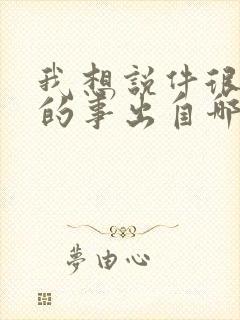 我想說件很
的事出自哪
夢由心